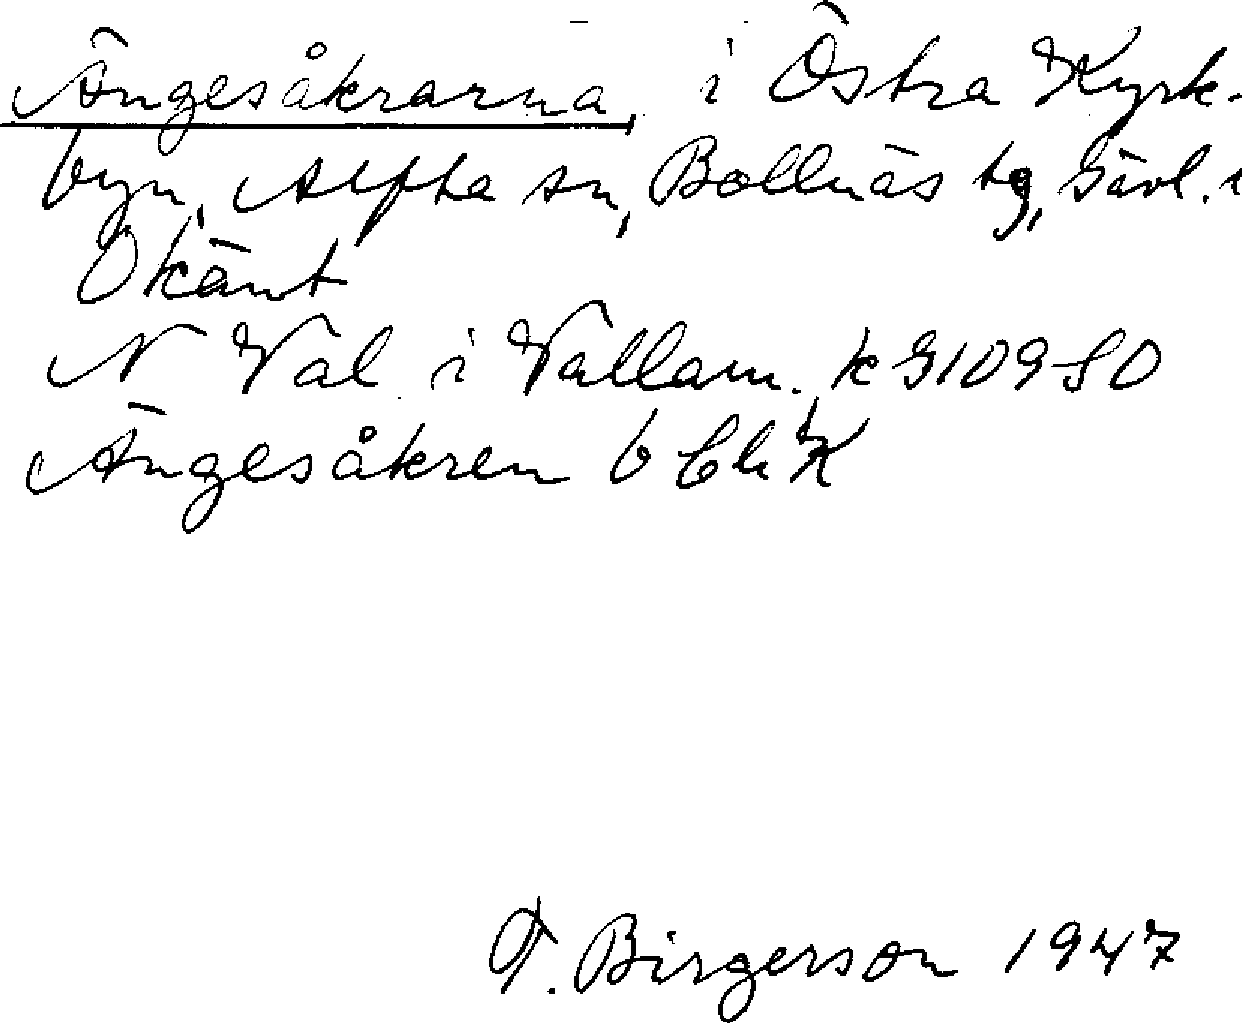 Ängesåkrarna, i Östra Kyrk-
byn, Alfta sn, Bollnäs tg, Gävl. l
Okänt
N Val i Vallam. k G109-80
Ängesåkren b
T. Birgerson 1947